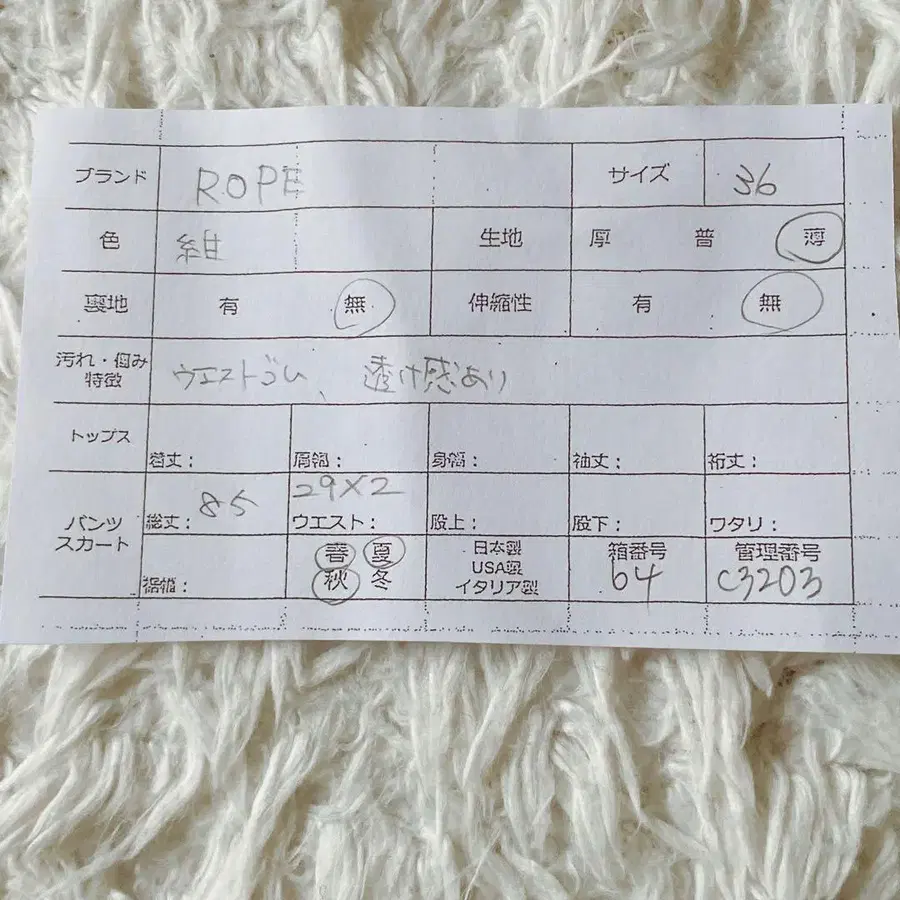 ブランド ROPE サイズ 36
色 紺 生地 厚 普 薄
裏地 有 無 伸縮性 有 無
汚れ・傷み
特徴 ウエストゴム 透け感あり
トップス 着丈: 肩幅: 身幅: 袖丈: 裄丈:
パンツ
スカート 総丈: 85 ウエスト: 29×2 股上: 股下: ワタリ:
裾幅: 春 夏 秋 冬 日本製 USA製 イタリア製 箱番号 64 管理番号 C3203